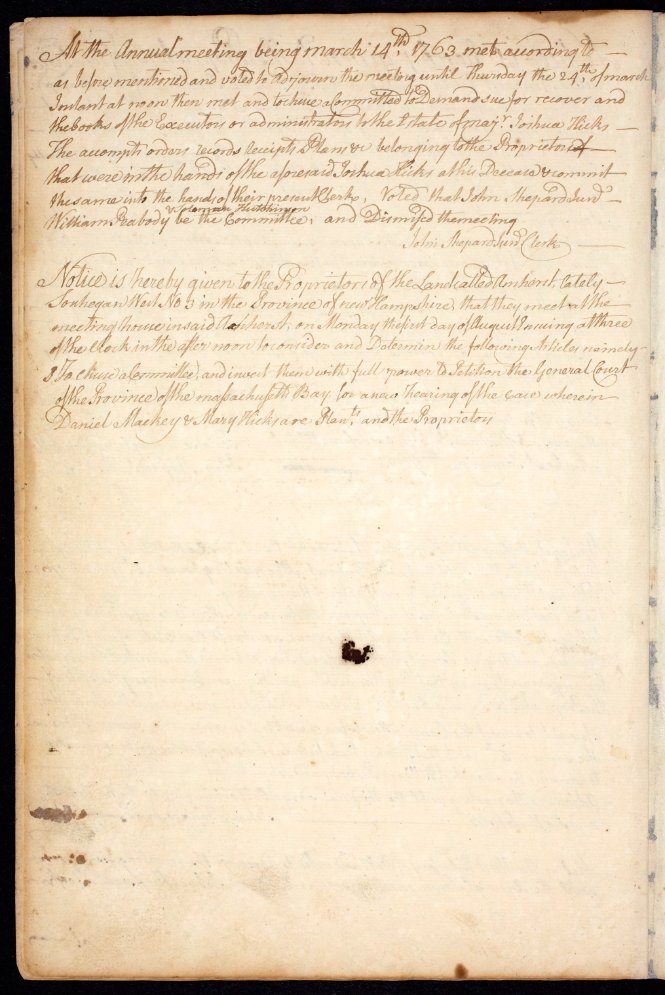 At the Annual meeting being march 14th, 1763 met according to
as before mentioned and voted to adjourn the meeting until Thursday the 24th, of march
Instant at noon then met and to chuse a Committee to Demand sue for recover and
the books of the Executors or administrators to the Estate of majr. Joshua Hicks
The accompts orders records receipts Plans &c belonging to the Proprietors
that were in the hands of the aforesaid Joshua Hicks at his Decease & commit
the same into the hands of their present Clerk. Voted that John Shepard Junr
& Solomon Hutchinson
William Peabody be the Committee, and Dismised the meeting
John Shepard Junr Clerk
Notice is hereby given to the Proprietors of the Land called Amherst, lately
Souhegan West No 3 in the Province of new Hampshire, that they meet at the
meeting house in said Amherst, on Monday the first day of August Insuing at three
of the Clock in the after noon to consider and Determin the following Articles namely
1 To chuse a Committee, and invest them with full power to Petition the General Court
of the Province of the massachusetts Bay for a new hearing of the Case wherein
Daniel Mackey & Mary Hicks are Plants and the Proprietors